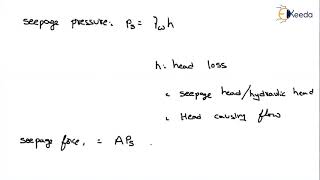 Ekeeda
seepage pressure: Ps = γω h
h = head loss
= seepage head/hydraulic head
= Head causing flow
seepage force, = APs